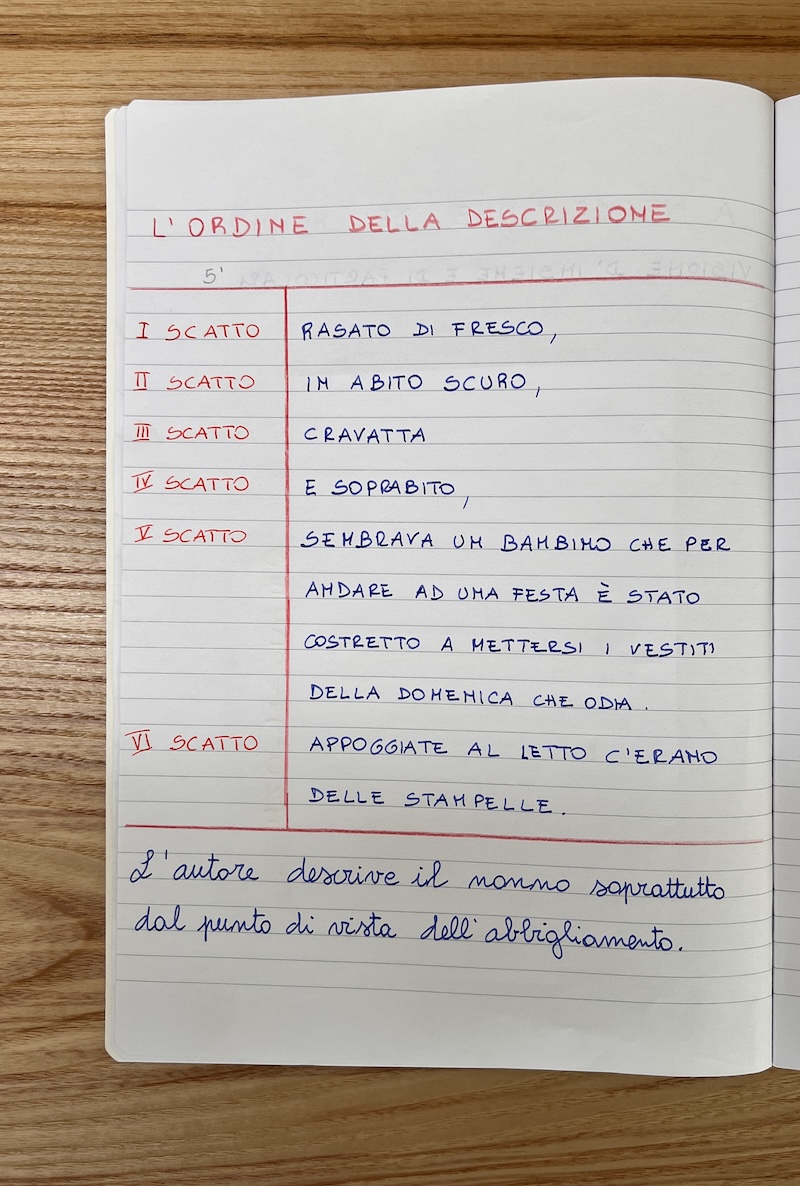 L'ORDINE DELLA DESCRIZIONE
5'
I SCATTO RASATO DI FRESCO,
II SCATTO IN ABITO SCURO,
III SCATTO CRAVATTA
IV SCATTO E SOPRABITO,
V SCATTO SEMBRAVA UN BAMBINO CHE PER
ANDARE AD UNA FESTA È STATO
COSTRETTO A METTERSI I VESTITI
DELLA DOMENICA CHE ODIA.
VI SCATTO APPOGGIATE AL LETTO C'ERANO
DELLE STAMPELLE.
L'autore descrive il nonno soprattutto
dal punto di vista dell'abbigliamento.